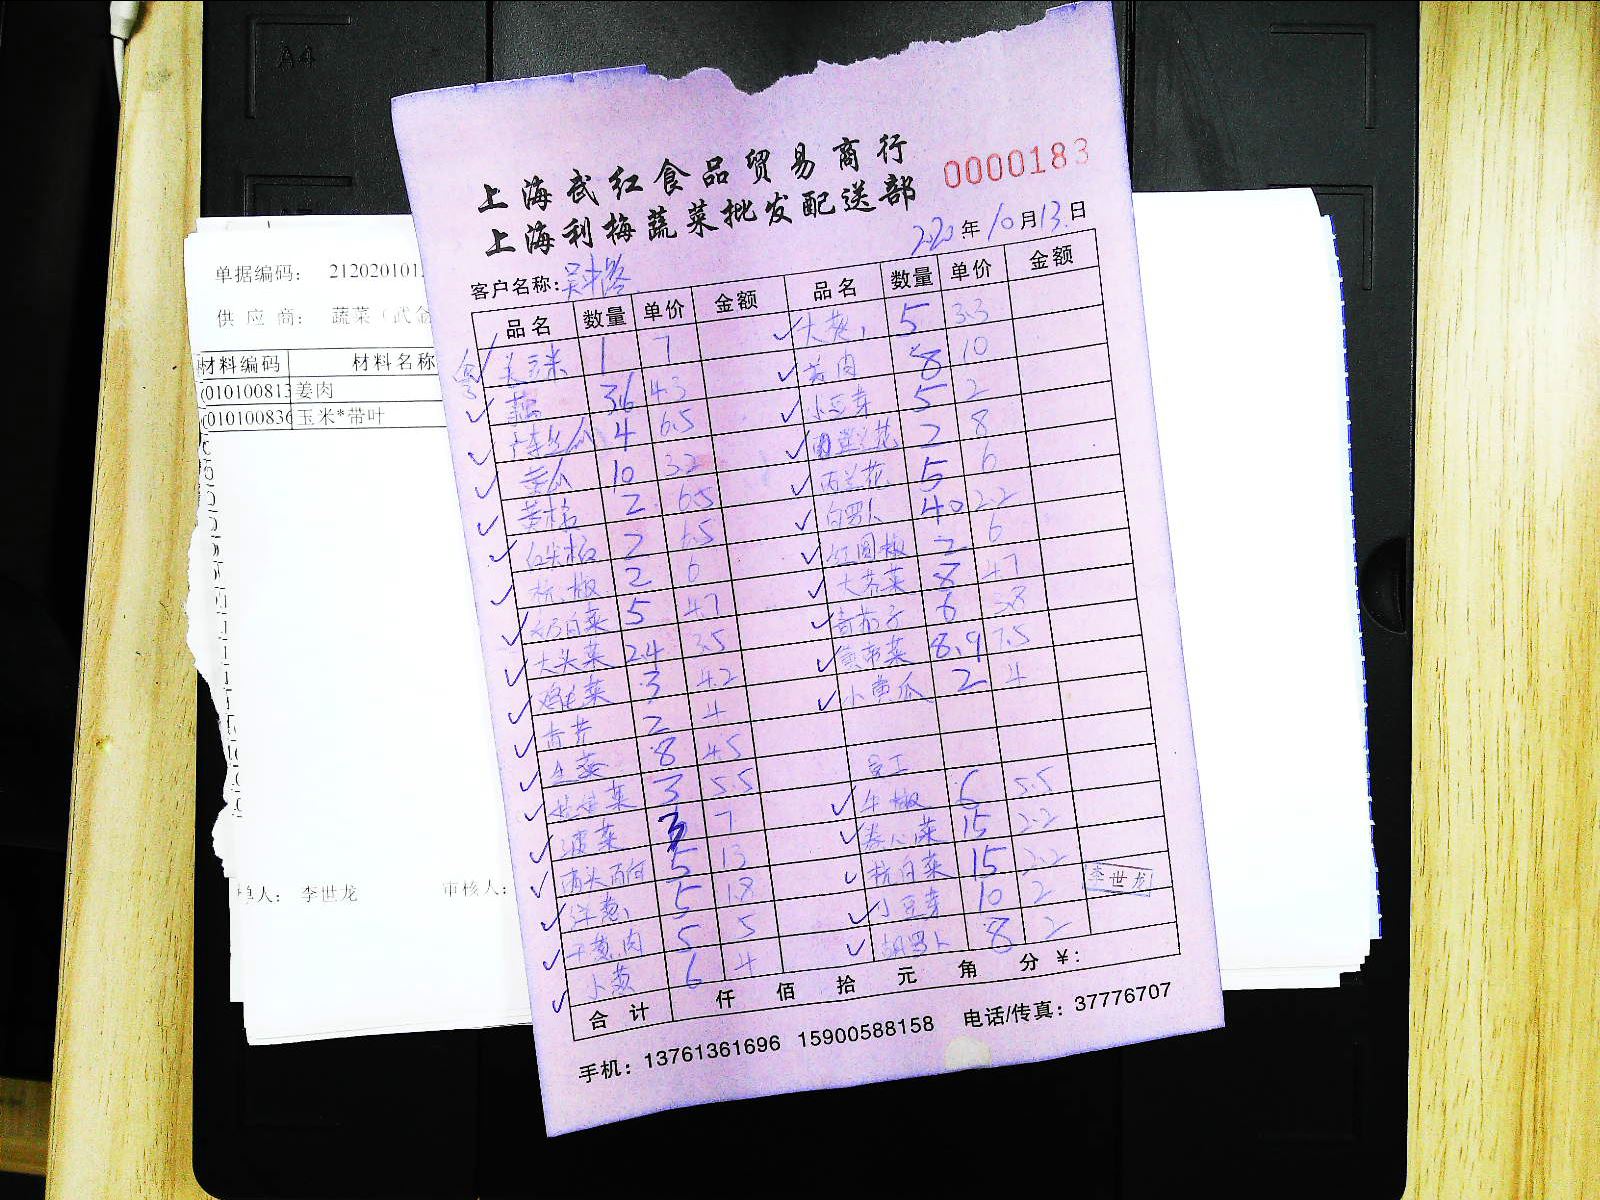 A4
上海武红食品贸易商行
上海利梅蔬菜批发配送部
0000183
2020年10月13日
客户名称:吴中路
品名 数量 单价 金额
1 7
藕 36 4.3
4 6.5
黄瓜 10 3.2
黄椒 2 6.5
红尖椒 2 6.5
杭椒 2 6
奶白菜 5 4.7
大头菜 24 3.5
鸡毛菜 3 4.2
香芹 2 4
生菜 8 4.5
3 5.5
菠菜 3 7
两头百合 5 13
洋葱 5 1.8
干葱肉 5 5
小葱 6 4
品名 数量 单价 金额
大葱 5 3.3
姜肉 8 10
小豆芽 5 2
2 8
西兰花 5 6
白罗卜 40 2.2
红圆椒 2 6
大芥菜 8 4.7
青茄子 6 3.8
8.9 7.5
小黄瓜 2 4
员工
牛椒 6 5.5
卷心菜 15 2.2
杭白菜 15 2.2
小豆芽 10 2
胡罗卜 8 2
李世龙
合计 仟 佰 拾 元 角 分 ¥:
手机: 13761361696 15900588158 电话/传真: 37776707
单据编码: 212020101
供应商: 蔬菜(武
材料编码 材料名称
010100813 姜肉
010100836 玉米*带叶
单人: 李世龙 审核人: